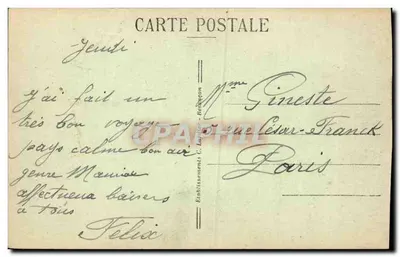 CARTE POSTALE
Jeudi
J'ai fait un
très bon voyage
pays calme bon air
genre
affectueux baisers
à tous
Felix
Mme Gineste
5 rue César-Franck
Paris
CPARAMA
Etablissements C.